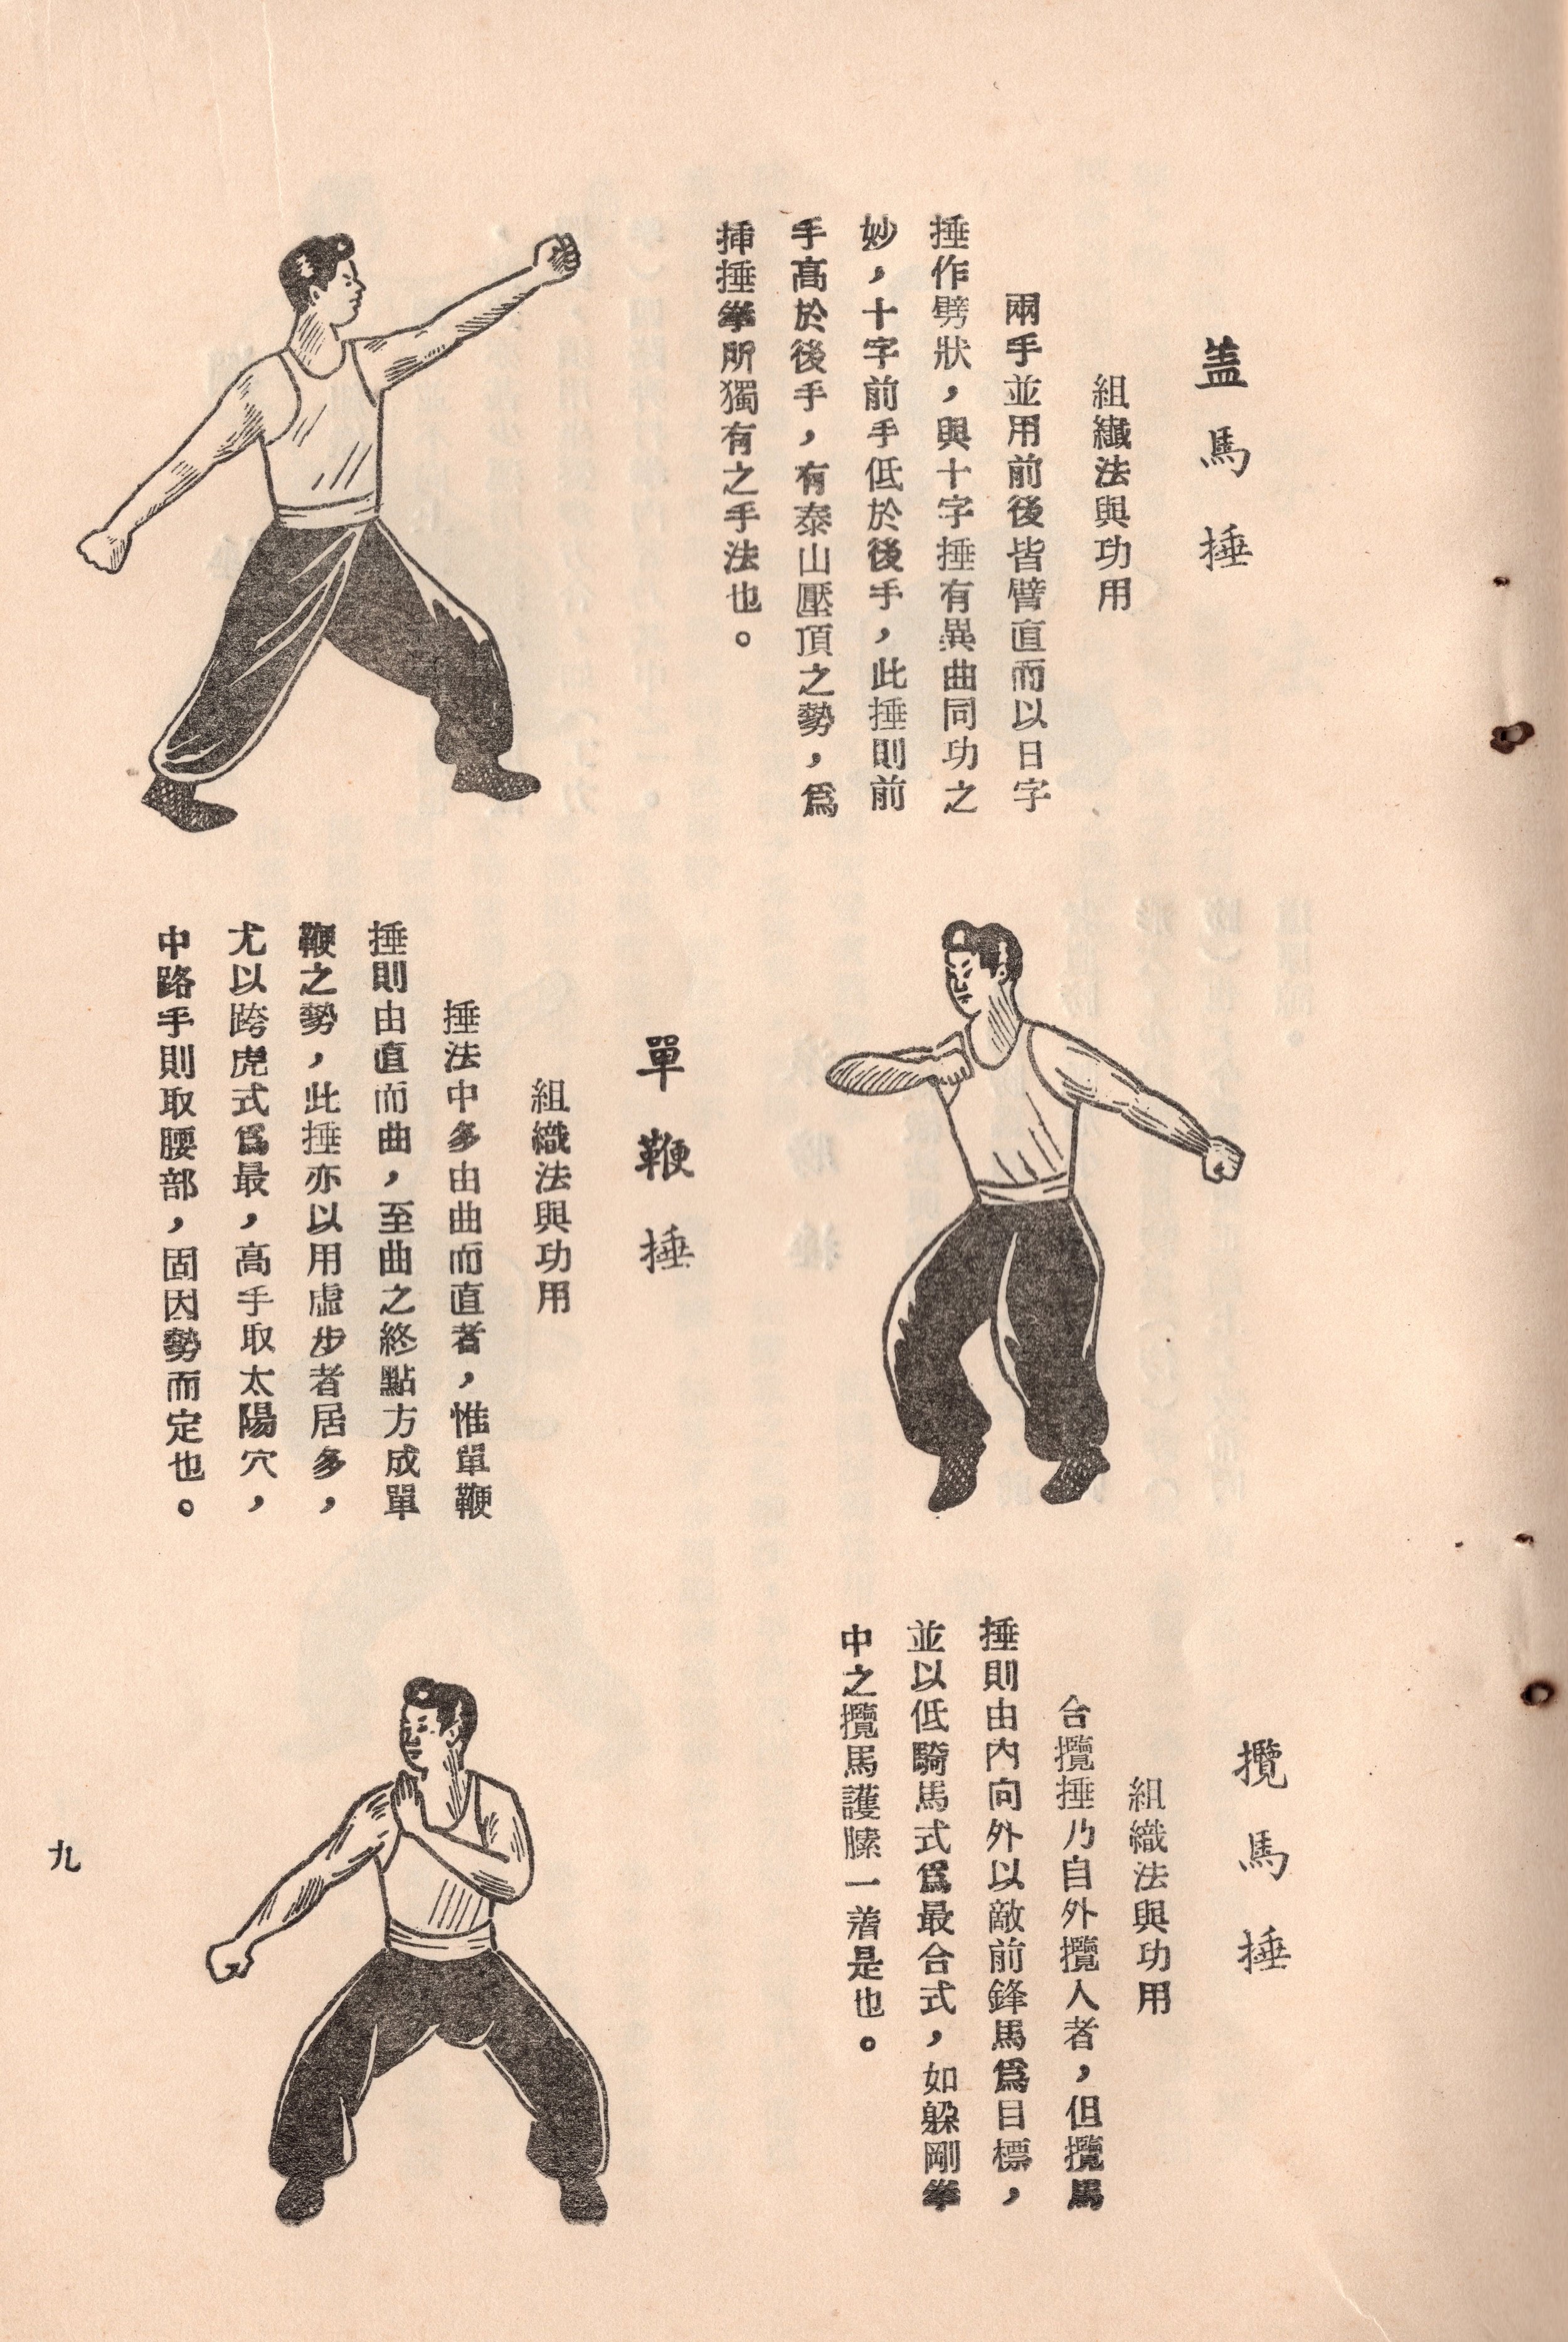 盖馬捶
組織法與功用
兩手並用前後皆臂直而以日字
捶作劈狀，與十字捶有異曲同功之
妙，十字前手低於後手，此捶則前
手高於後手，有泰山壓頂之勢，爲
揷捶拳所獨有之手法也。
單鞭捶
組織法與功用
捶法中多由曲而直者，惟單鞭
捶則由直而曲，至曲之終點方成單
鞭之勢，此捶亦以用虛步者居多，
尤以跨虎式爲最，高手取太陽穴，
中路手則取腰部，固因勢而定也。
攬馬捶
組織法與功用
合攬捶乃自外攬人者，但攬馬
捶則由內向外以敵前鋒馬爲目標，
並以低騎馬式爲最合式，如躲剛拳
中之攬馬護膆一着是也。
九